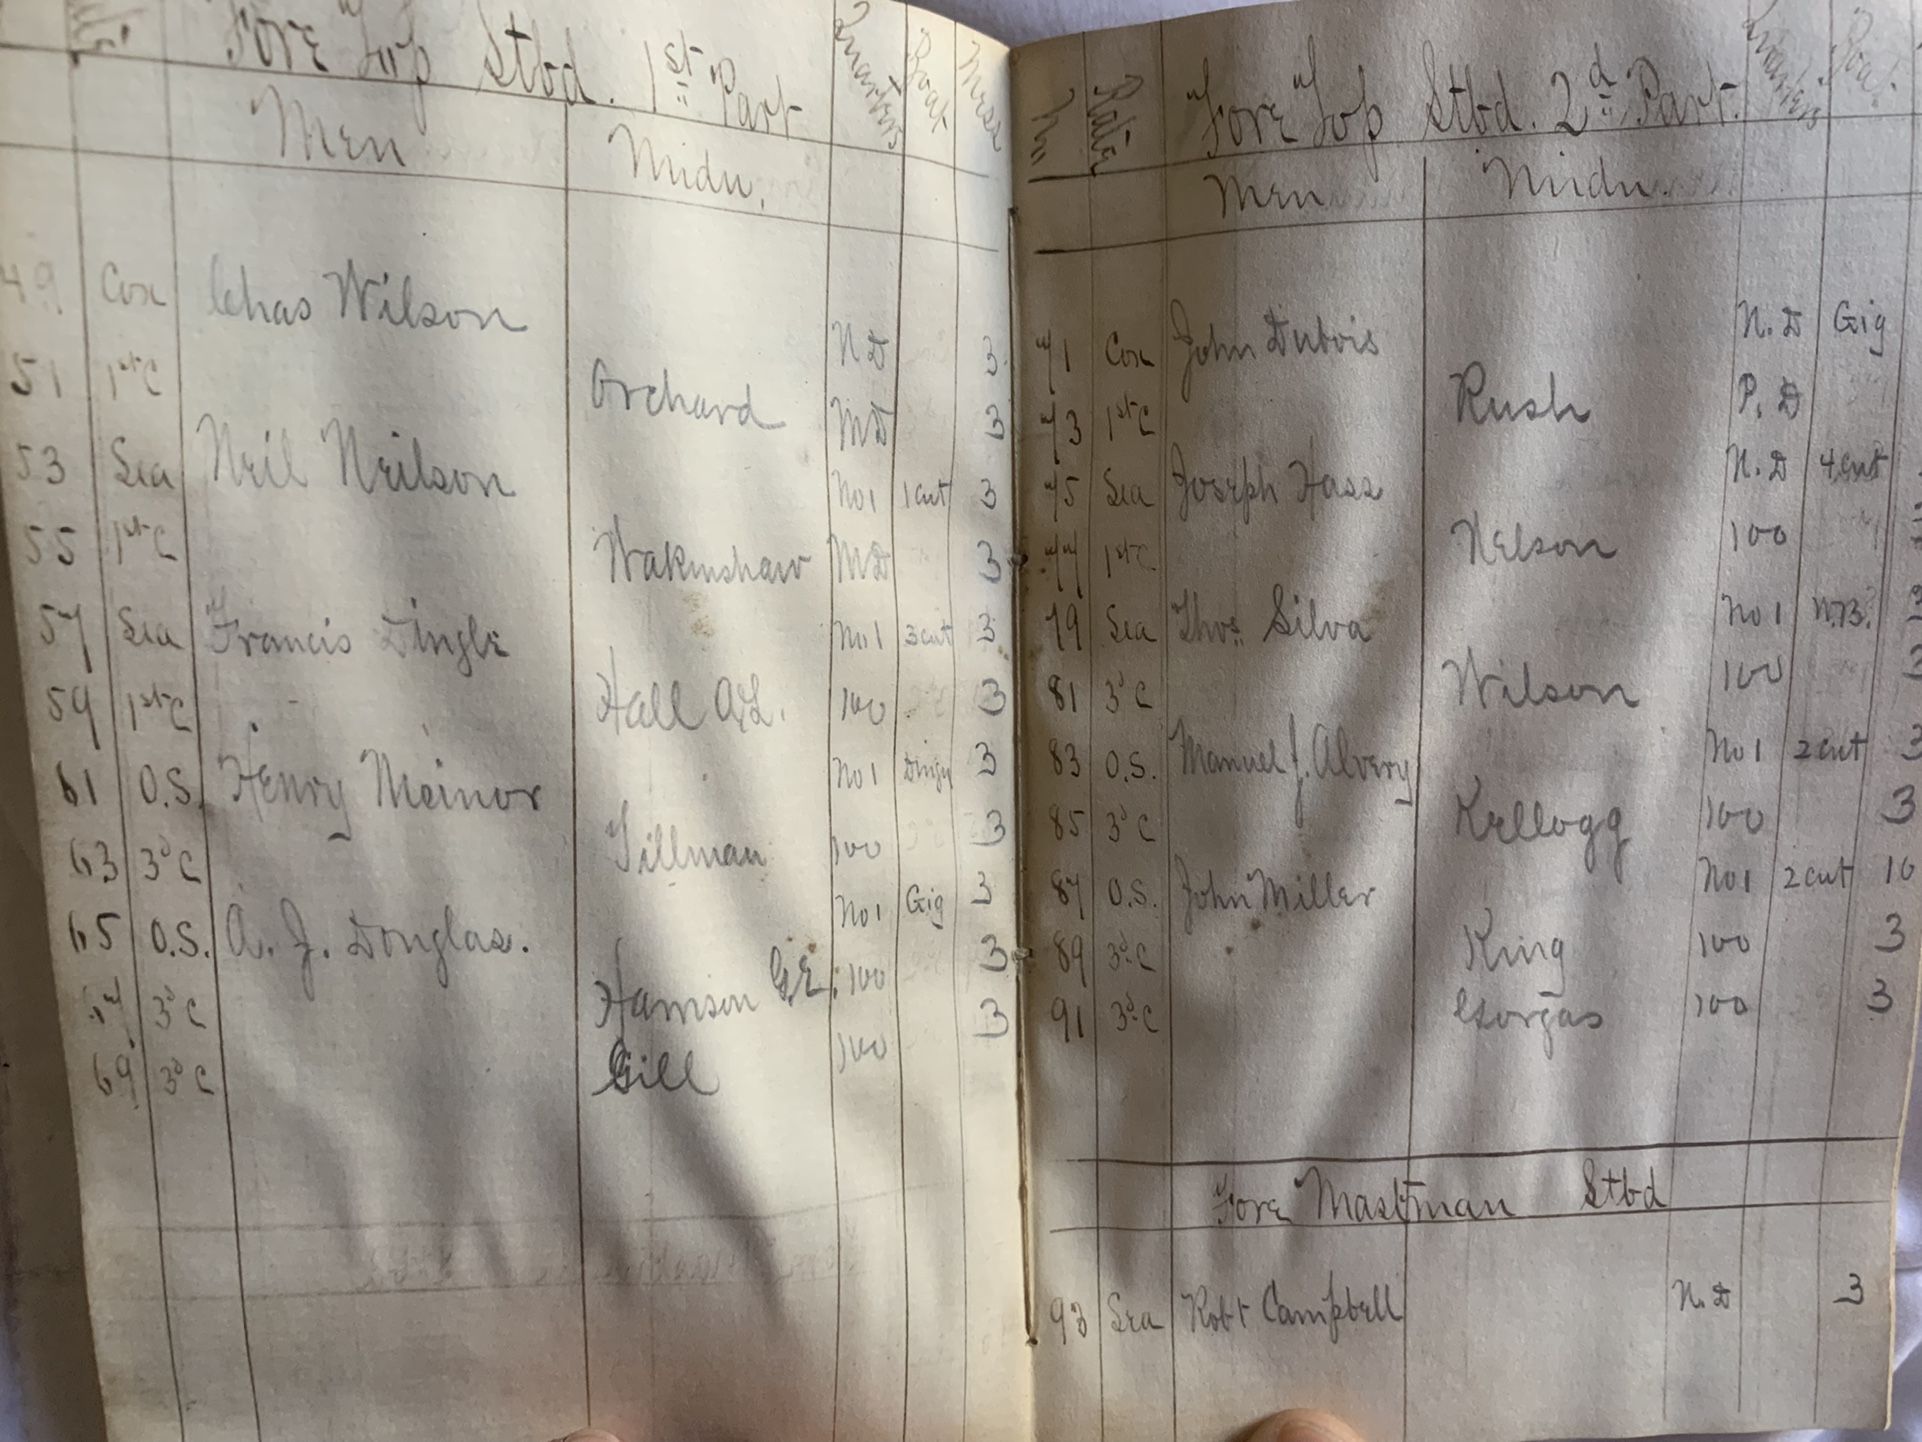 No. Fore Top Stbd. 1st Part Quarters Boat Mess
Men Midn.
49 Cox Chas Wilson N.D 3
51 1st C Orchard M.D 3
53 Sea Neil Neilson No 1 1 cut 3
55 1st C Wakenshaw M.D 3
57 Sea Francis Dingle No 1 3 cut 3
59 1st C Hall A.L. 100 3
61 O.S. Henry Meinor No 1 Dingy 3
63 3d C Tillman 100 3
65 O.S. A. J. Douglas. No 1 Gig 3
67 3d C Harrison G.E. 100 3
69 3d C Gill 100 3
No. Rate Fore Top Stbd. 2d Part. Quarters Boat.
Men Midn.
71 Cox John Dubois N.D Gig
73 1st C Rush P.D
75 Sea Joseph Hass N.D 4 cut
77 1st C Nelson 100
79 Sea Thos. Silva No 1 W.B. 3
81 3d C Wilson 100 3
83 O.S. Manuel J. Alvery No 1 2 cut 3
85 3d C Kellogg 100 3
87 O.S. John Miller No 1 2 cut 10
89 3d C King 100 3
91 3d C Gorgas 100 3
Fore Mastman Stbd
93 Sea Robt Campbell N.D 3